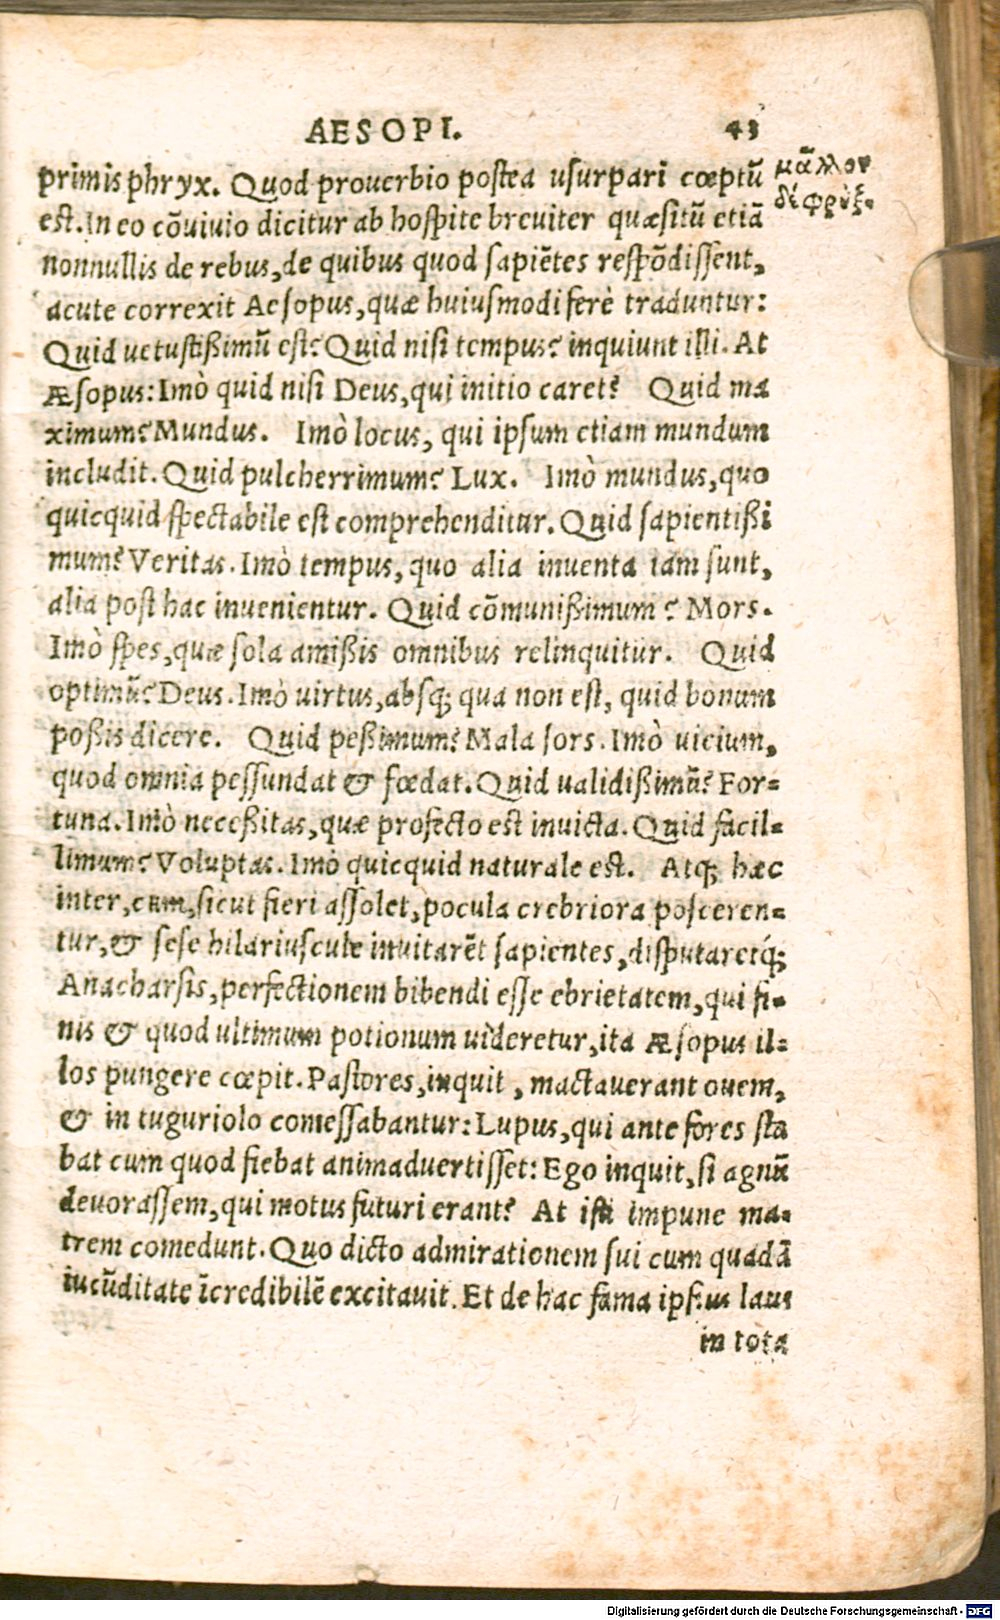 AESOPI. 43
primis phryx. Quod prouerbio postea usurpari cœptũ
μᾶλλον
δέ φρὺξ.
est. In eo cõuiuio dicitur ab hospite breuiter quæsitũ etiã
nonnullis de rebus, de quibus quod sapiẽtes respõdissent,
acute correxit Aesopus, quæ huiusmodi ferè traduntur:
Quid uetustißimũ est? Quid nisi tempus? inquiunt illi. At
Æsopus: Imò quid nisi Deus, qui initio caret? Quid ma
ximum? Mundus. Imò locus, qui ipsum etiam mundum
includit. Quid pulcherrimum? Lux. Imò mundus, quo
quicquid spectabile est comprehenditur. Quid sapientißi
mum? Veritas. Imò tempus, quo alia inuenta iam sunt,
alia post hac inuenientur. Quid cõmunißimum? Mors.
Imò spes, quæ sola amißis omnibus relinquitur. Quid
optimũ? Deus. Imò uirtus, absq; qua non est, quid bonum
poßis dicere. Quid peßimum? Mala sors. Imò uicium,
quod omnia pessundat & fœdat. Quid validißimũ? For-
tuna. Imò neceßitas, quæ profecto est inuicta. Quid facil-
limum? Voluptas. Imò quicquid naturale est. Atq; hæc
inter, cum, sicut fieri assolet, pocula crebriora posceren-
tur, & sese hilariuscule inuitarẽt sapientes, disputaretq́;
Anacharsis, perfectionem bibendi esse ebrietatem, qui fi-
nis & quod ultimum potionum uideretur, ita Æsopus il-
los pungere cœpit. Pastores, inquit, mactauerant ouem,
& in tuguriolo comessabantur: Lupus, qui ante fores sta
bat cum quod fiebat animaduertisset: Ego inquit, si agnũ
deuorassem, qui motus futuri erant? At isti impune ma-
trem comedunt. Quo dicto admirationem sui cum quadã
iucũditate ĩcredibilẽ excitauit. Et de hac fama ipsius laus
in tota
Digitalisierung gefördert durch die Deutsche Forschungsgemeinschaft - DFG